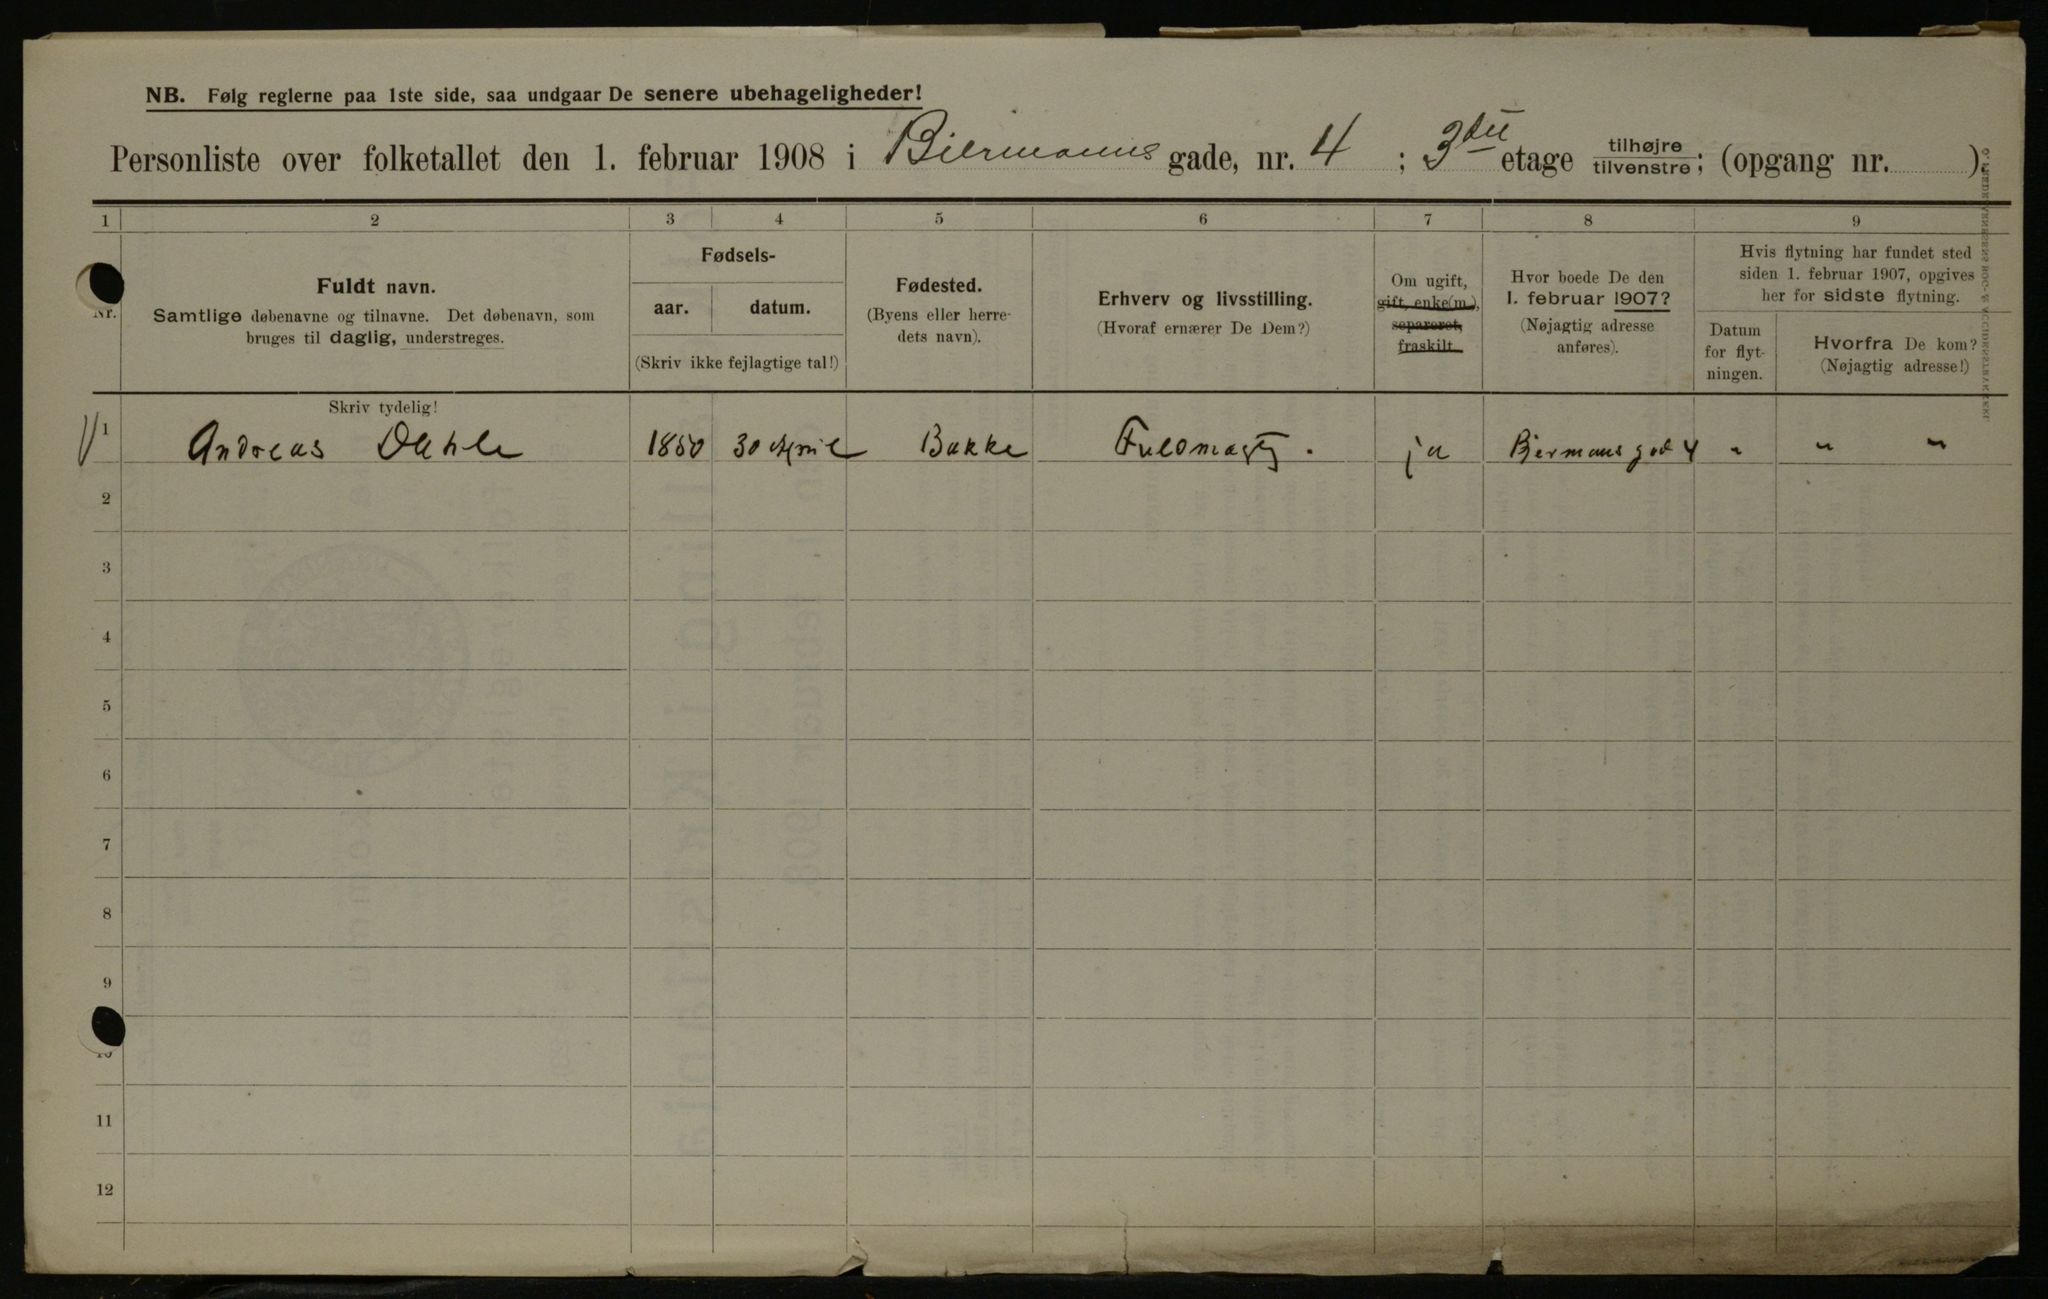 NB. Følg reglerne paa 1ste side, saa undgaar De senere ubehageligheder!
Personliste over folketallet den 1. februar 1908 i Biermanns gade, nr. 4 ; 3die etage tilhøjre tilvenstre; (opgang nr. ).
1 2 3 4 5 6 7 8 9
Nr.
Fuldt navn.
Samtlige døbenavne og tilnavne. Det døbenavn, som
bruges til daglig, understreges.
Fødsels-
aar. datum.
(Skriv ikke fejlagtige tal!)
Fødested.
(Byens eller herre-
dets navn).
Erhverv og livsstilling.
(Hvoraf ernærer De Dem?)
Om ugift,
gift, enke(m.),
separeret,
fraskilt.
Hvor boede De den
1. februar 1907?
(Nøjagtig adresse
anføres).
Hvis flytning har fundet sted
siden 1. februar 1907, opgives
her for sidste flytning.
Datum
for flyt-
ningen.
Hvorfra De kom?
(Nøjagtig adresse!)
Skriv tydelig!
1 Andreas Dahle 1850 30 April Bakke Fuldmægtig. ja Biermans gad 4 " " "
2
3
4
5
6
7
8
9
10
11
12